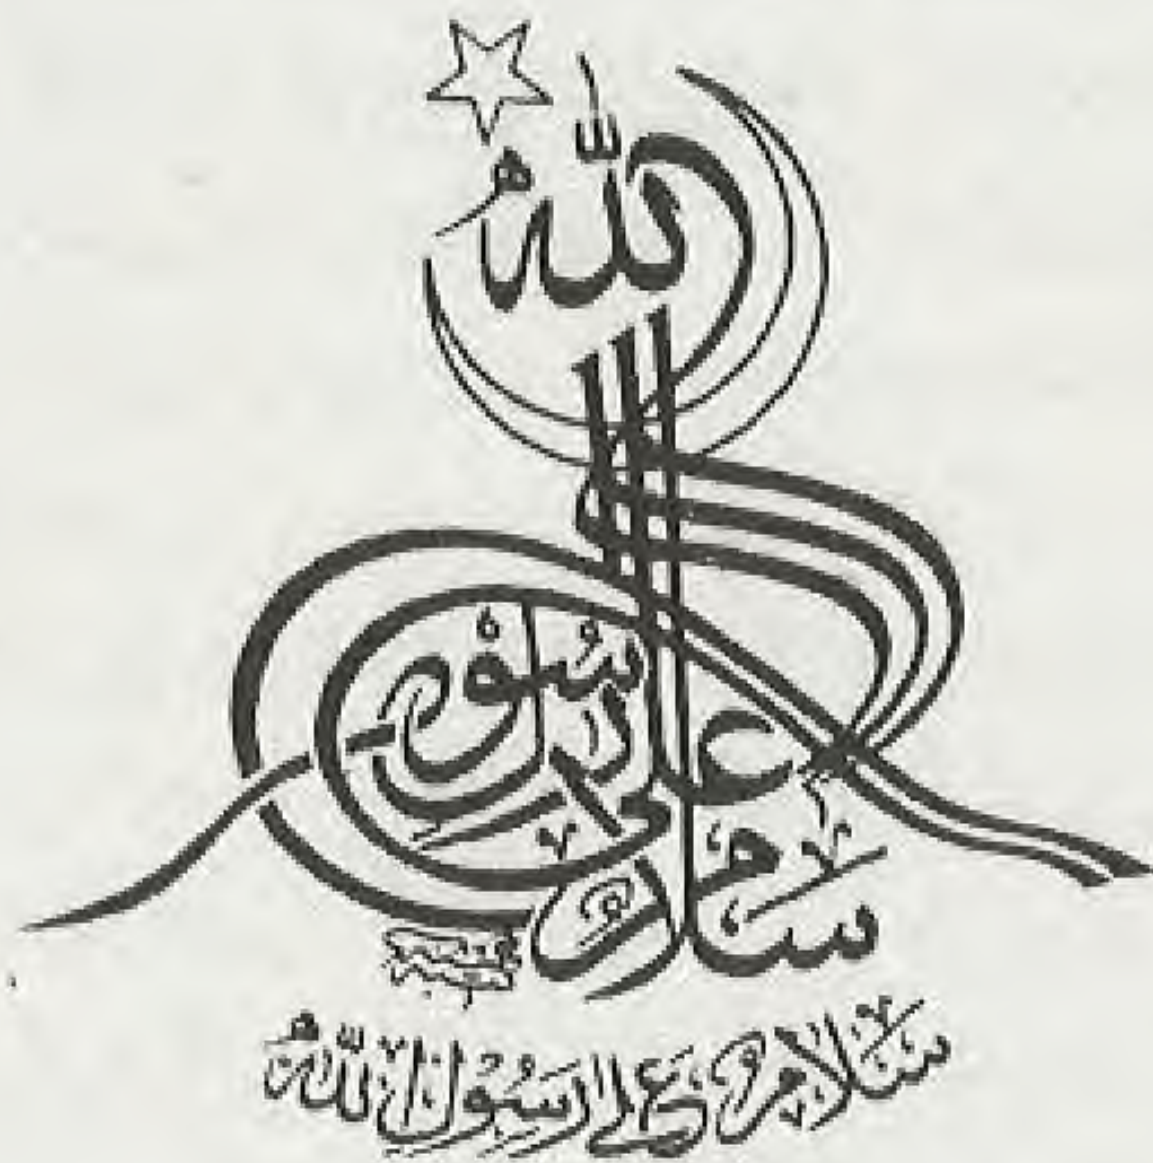 سَلَامٌ عَلَى رَسُولِ اللّٰهِ
سَلَامٌ عَلٰى رَسُوْلِ اللّٰهِ